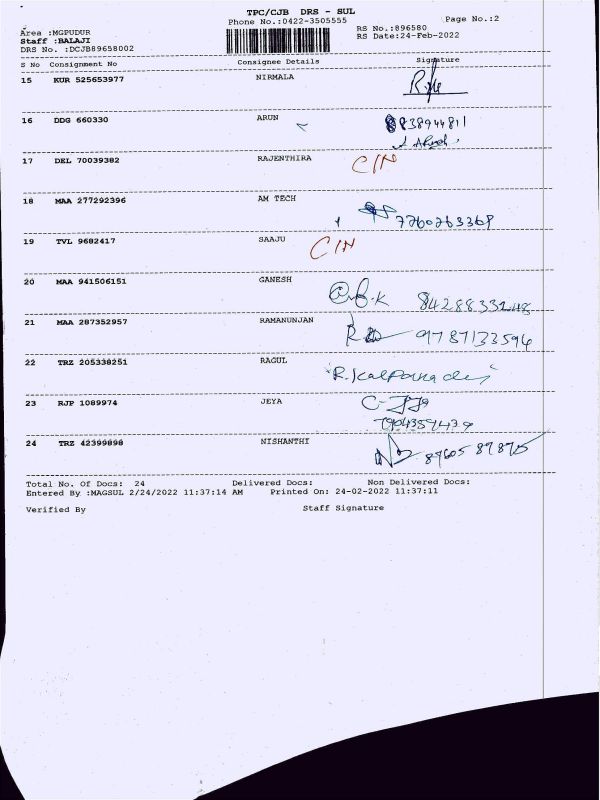 TPC/CJB DRS - SUL
Phone No.:0422-3505555 Page No.:2
Area :MGPUDUR RS No.:896580
Staff :BALAJI RS Date:24-Feb-2022
DRS No. :DCJB89658002
S No Consignment No Consignee Details Signature
15 KUR 525653977 NIRMALA
16 DDG 660330 ARUN
17 DEL 70039382 RAJENTHIRA C/N
18 MAA 277292396 AM TECH
7260263368
19 TVL 9682417 SAAJU C/N
20 MAA 941506151 GANESH
21 MAA 287352957 RAMANUNJAN 9787133594
22 TRZ 205338251 RAGUL
R.kalpanadevi
23 RJP 1089974 JEYA
7904359439
24 TRZ 42399898 NISHANTHI
Total No. Of Docs: 24 Delivered Docs: Non Delivered Docs:
Entered By :MAGSUL 2/24/2022 11:37:14 AM Printed On: 24-02-2022 11:37:11
Verified By Staff Signature